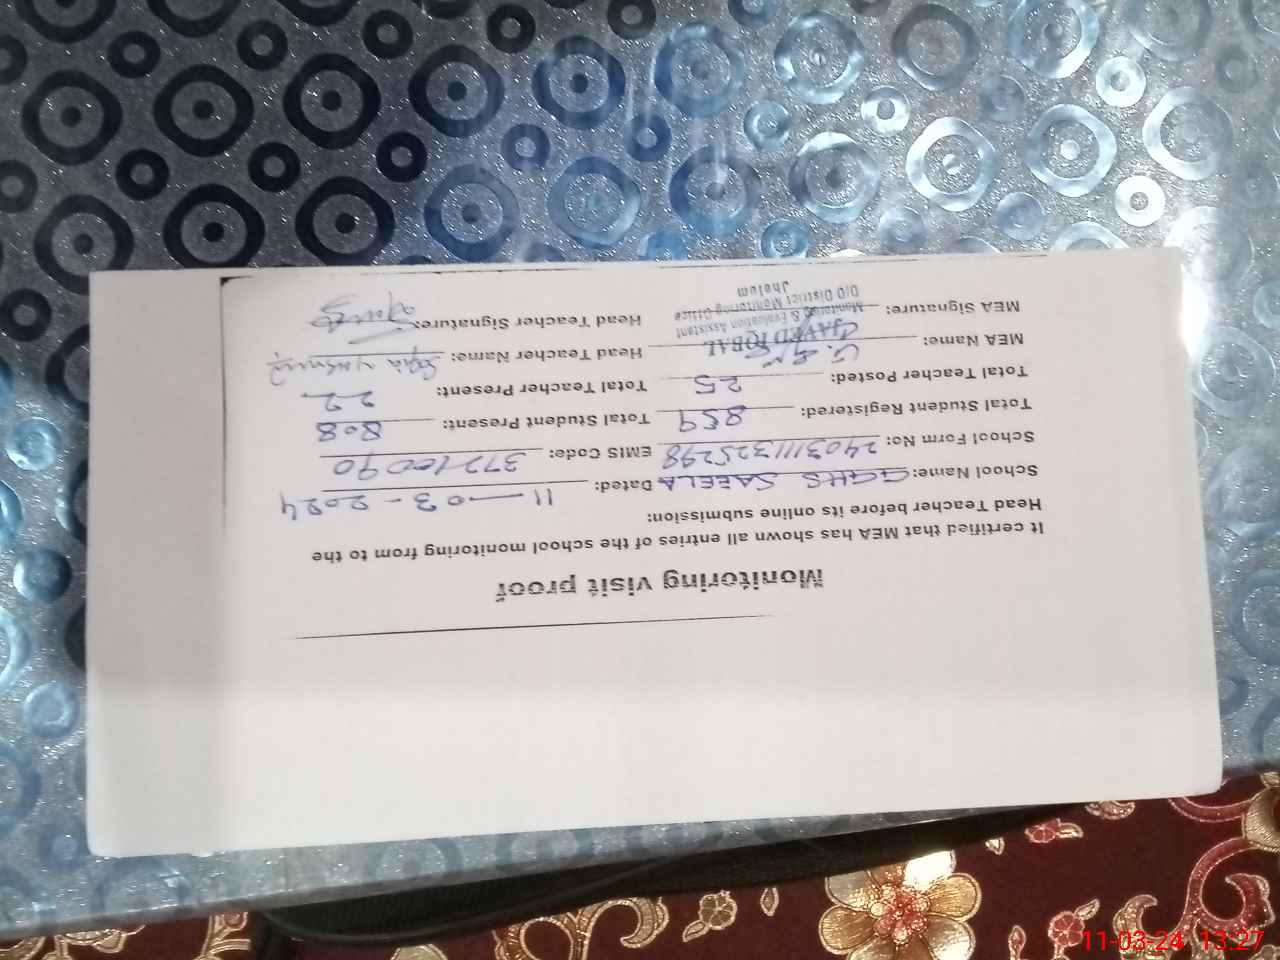 Monitoring visit proof
It certified that MEA has shown all entries of the school monitoring from to the
Head Teacher before its online submission:
School Name: GGHS SAEELA Dated: 11-03-2024
School Form No: 2403111325298 EMIS Code: 37210090
Total Student Registered: 859 Total Student Present: 808
Total Teacher Posted: 25 Total Teacher Present: 22
MEA Name: JAVED IQBAL Head Teacher Name:
Monitoring & Evaluation Assistant
MEA Signature: Head Teacher Signature:
O/O District Monitoring Office
Jhelum
11-03-24 13:27